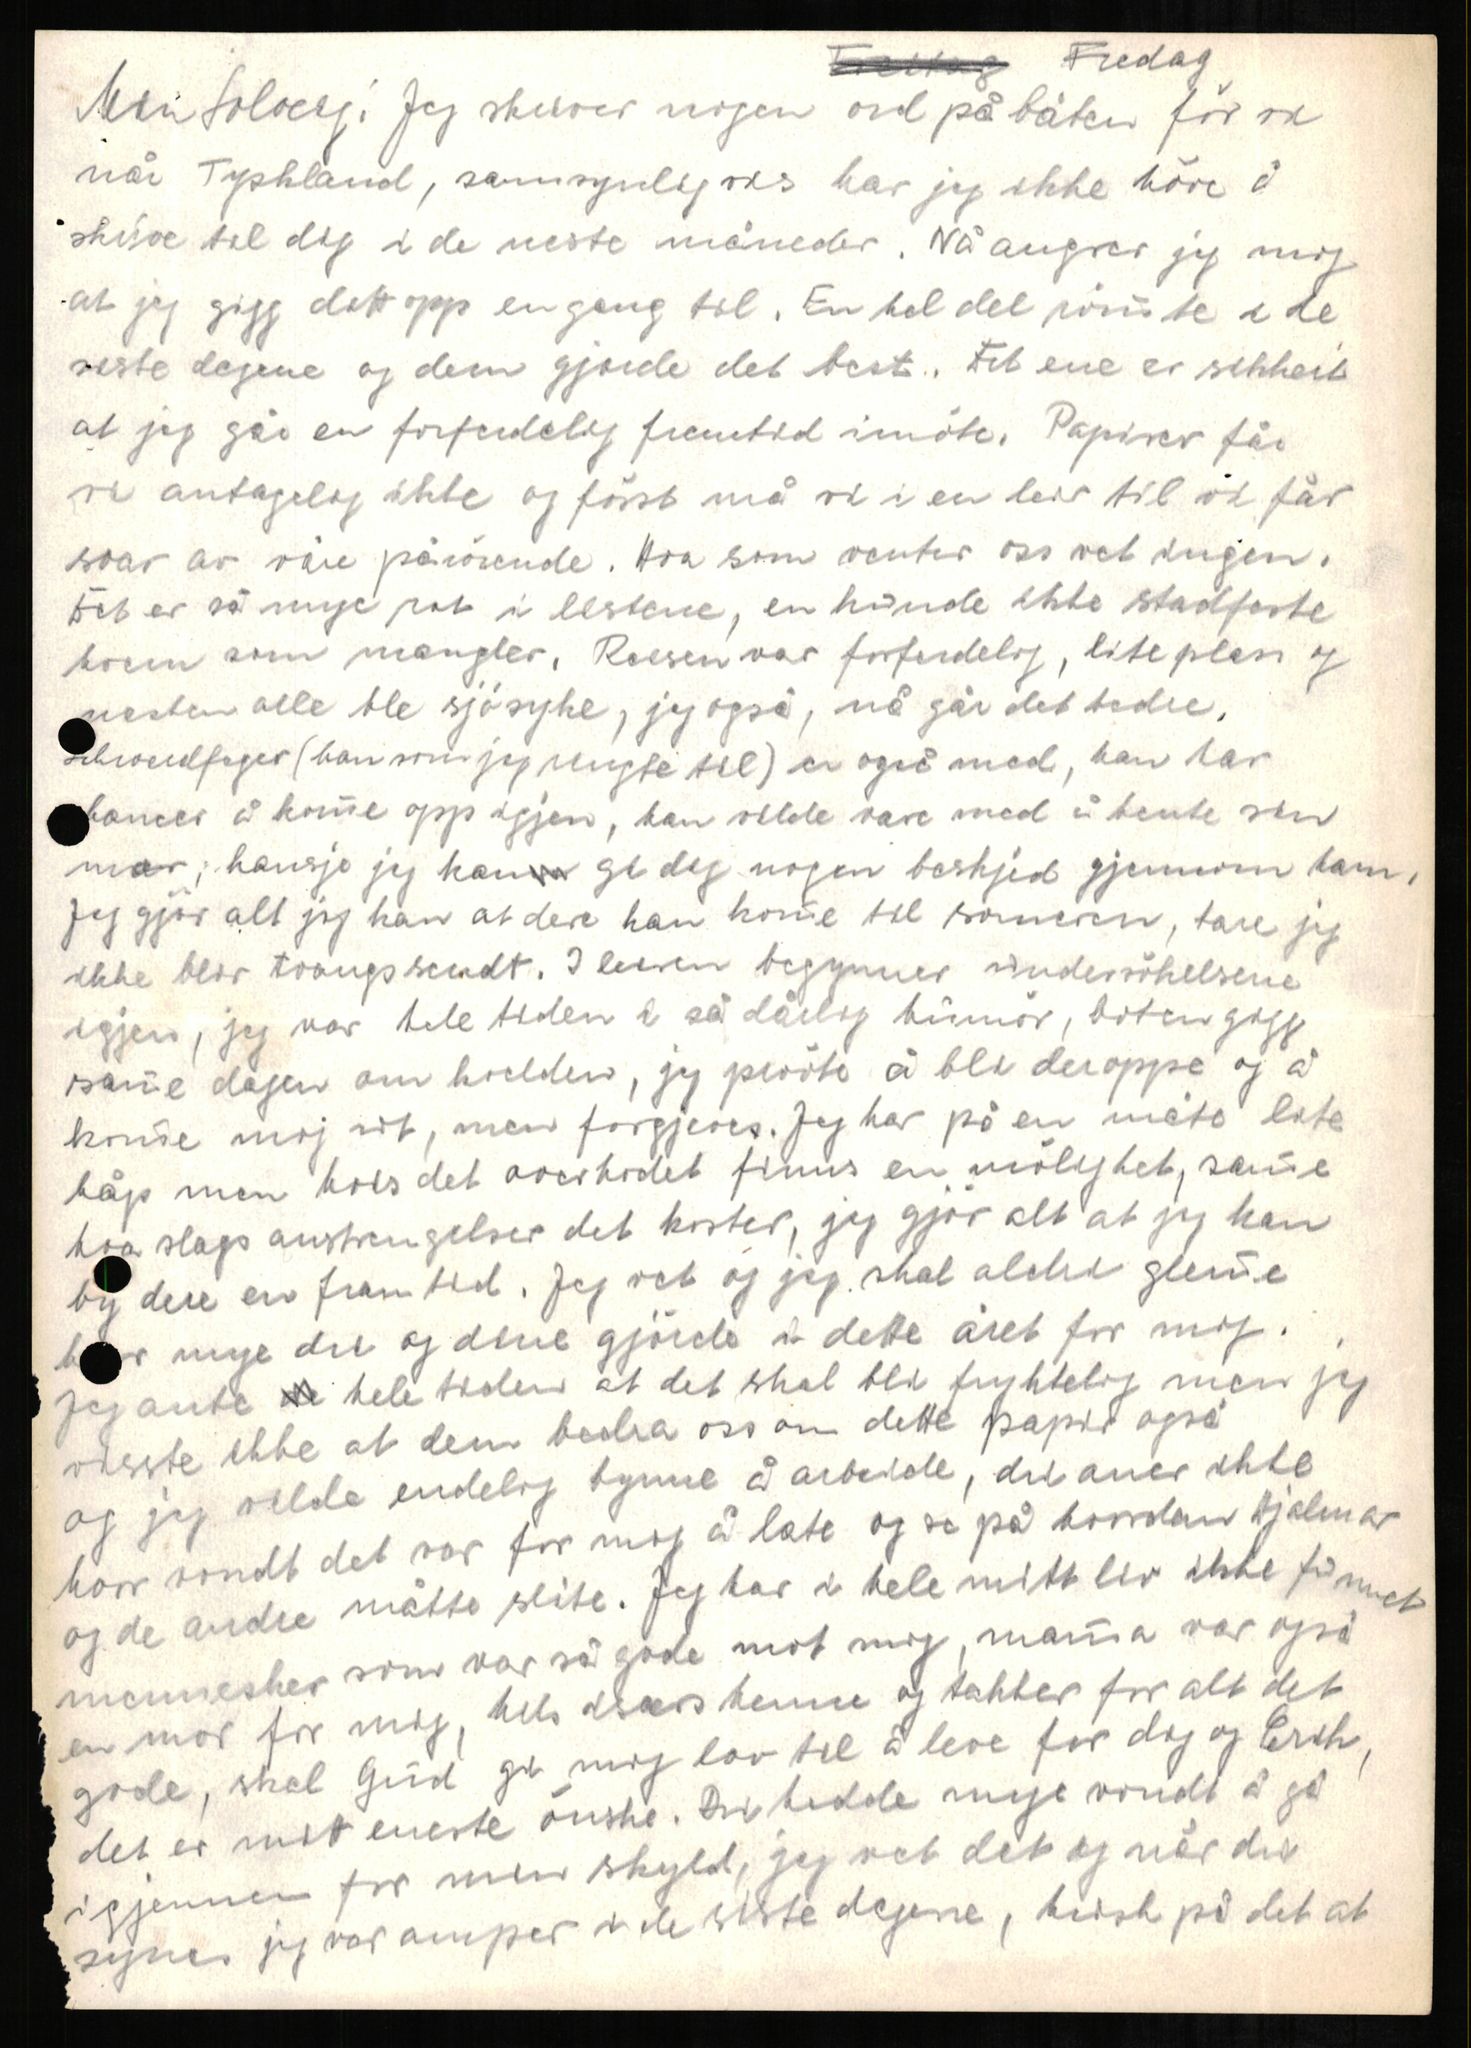 Freitag Fredag
Min Solveig! Jeg skriver nogen ord på båten för vi
når Tyskland, sansynligvis har jeg ikke höve å
skrive til dig i de neste måneder. Nå angrer jeg mig
at jeg gigg ditt opp en gang til. En hel del römte i de
siste dagene og dem gjorde det best. Det ene er sikkert
at jeg går en forferdelig fremtid imöte. Papirer får
vi antagelig ikke og först må vi i en leir til vi får
svar av våre pårörende. Hva som venter oss vet ingen.
Det er så mye rot i listene, en kunde ikke stadfeste
hvem som mangler. Reisen var forferdelig, lite plass og
nesten alle ble sjösyke, jeg også, nå går det bedre.
Schwerdfeger (han som jeg ringte til) er også med, han har
chancer å komme opp igjen, han vilde vare med å hente sin
mor; kansje jeg kan gi dig nogen beskjed gjennom ham.
Jeg gjör alt jeg kan at dere kan komme til sommeren, bare jeg
ikke blir tvangssendt. I leiren begynner undersökelsene
igjen, jeg var hele tiden i så dårlig humör, båten gigg
samme dagen om kvelden, jeg prövte å bli deroppe og å
komme mig ut, men forgjeves. Jeg har på en måte lite
håp men hvis det overhodet finns en mölighet, samme
hva slags anstrengelser det koster, jeg gjör alt at jeg kan
by dere en framtid. Jeg vet og jeg skal aldri glemme
hvor mye du og dine gjörde i dette året for mig.
Jeg ante hele tiden at det skal bli fryktelig men jeg
visste ikke at dem bedra oss om dette papir også
og jeg vilde endelig bynne å arbeide, du aner ikke
hvor vondt det var for mig å late og se på hvordan Hjalmar
og de andre måtte slite. Jeg har i hele mitt liv ikke funnet
mennesker som var så gode mot mig, mamma var også
en mor for mig, hils isærs henne og takker for alt det
gode, skal Gud gi mig lov til å leve for dig og Erik,
det er mitt eneste önske. Du hadde mye vondt å gå
igjennem for min skyld, jeg vet det og når du
synes jeg var amper i de siste dagene, husk på det at